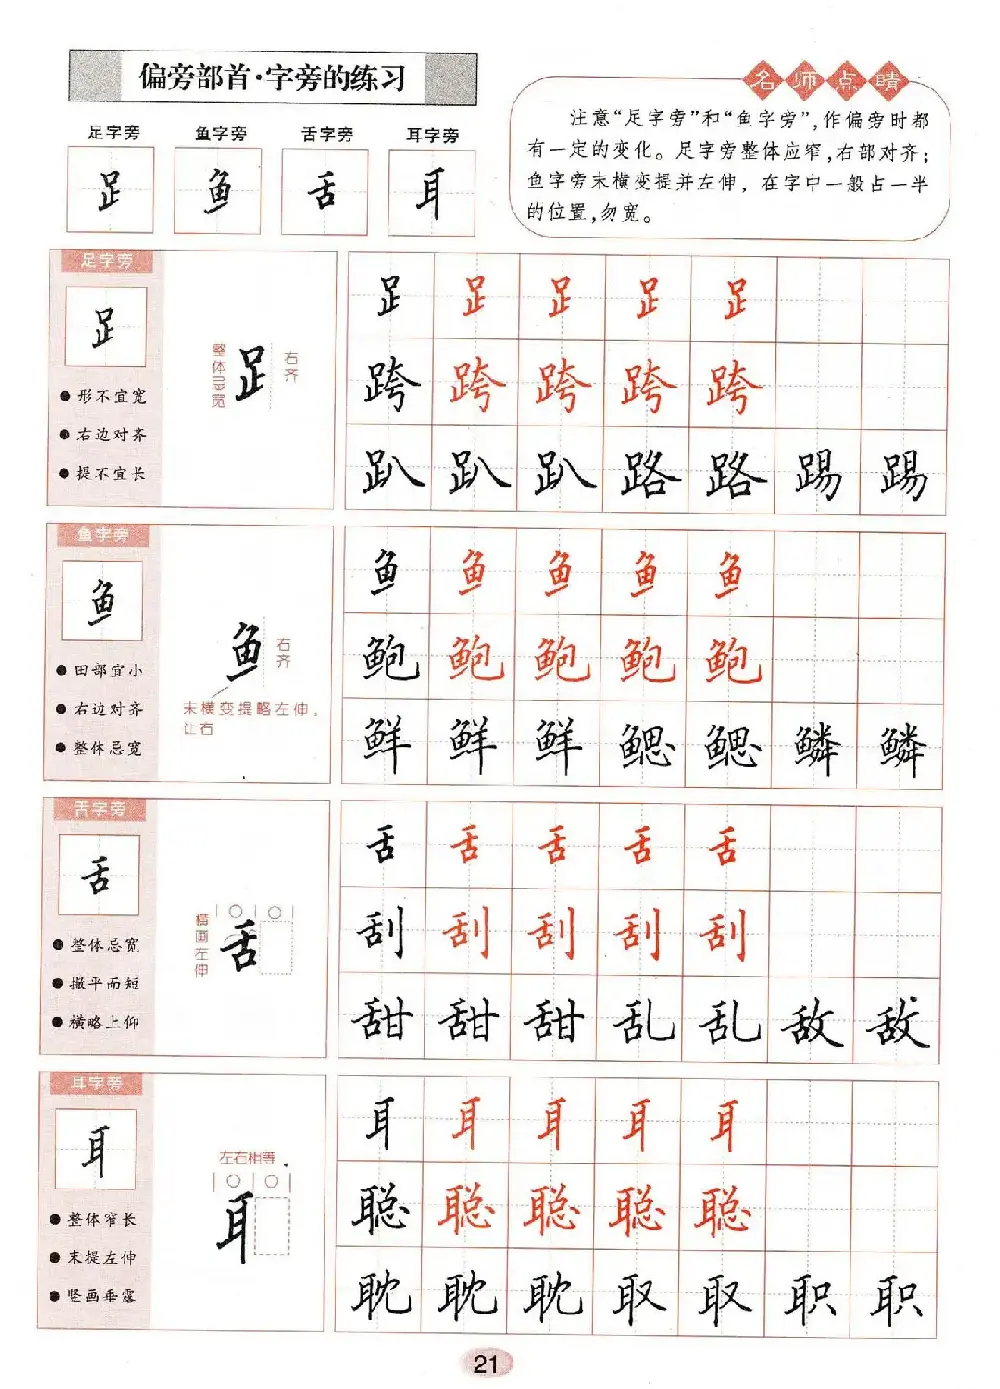 偏旁部首·字旁的练习
名师点睛
注意“足字旁”和“鱼字旁”,作偏旁时都
有一定的变化。足字旁整体应窄,右部对齐;
鱼字旁末横变提并左伸,在字中一般占一半
的位置,勿宽。
足字旁 鱼字旁 舌字旁 耳字旁
足 鱼 舌 耳
足字旁
足
形不宜宽
右边对齐
提不宜长
整体忌宽
足
右齐
足 足 足 足 足
跨 跨 跨 跨 跨
趴 趴 趴 路 路 踢 踢
鱼字旁
鱼
田部宜小
右边对齐
整体忌宽
鱼
右齐
末横变提略左伸,
让右
鱼 鱼 鱼 鱼 鱼
鲍 鲍 鲍 鲍 鲍
鲜 鲜 鲜 鳃 鳃 鳞 鳞
舌字旁
舌
整体忌宽
撇平而短
横略上仰
横画左伸
舌
舌 舌 舌 舌 舌
刮 刮 刮 刮 刮
甜 甜 甜 乱 乱 敌 敌
耳字旁
耳
整体窄长
末提左伸
竖画垂露
左右相等
耳
耳 耳 耳 耳 耳
聪 聪 聪 聪 聪
耽 耽 耽 取 取 职 职
21